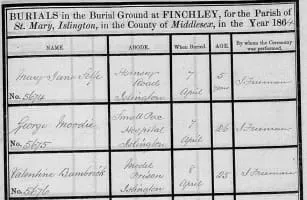 BURIALS in the Burial Ground at FINCHLEY, for the Parish of
St. Mary, Islington, in the County of Middlesex, in the Year 186
NAME. ABODE. When Buried. AGE. By whom the Ceremony was performed.
Mary Jane
No. 5674
Hornsey Road Islington
7 April
5
J Freeman
George Moodie
No. 5675
Small Pox Hospital Islington
7 April
26
J Freeman
Valentine Bambrick
No. 5676
Model Prison Islington
8 April
28
J Freeman